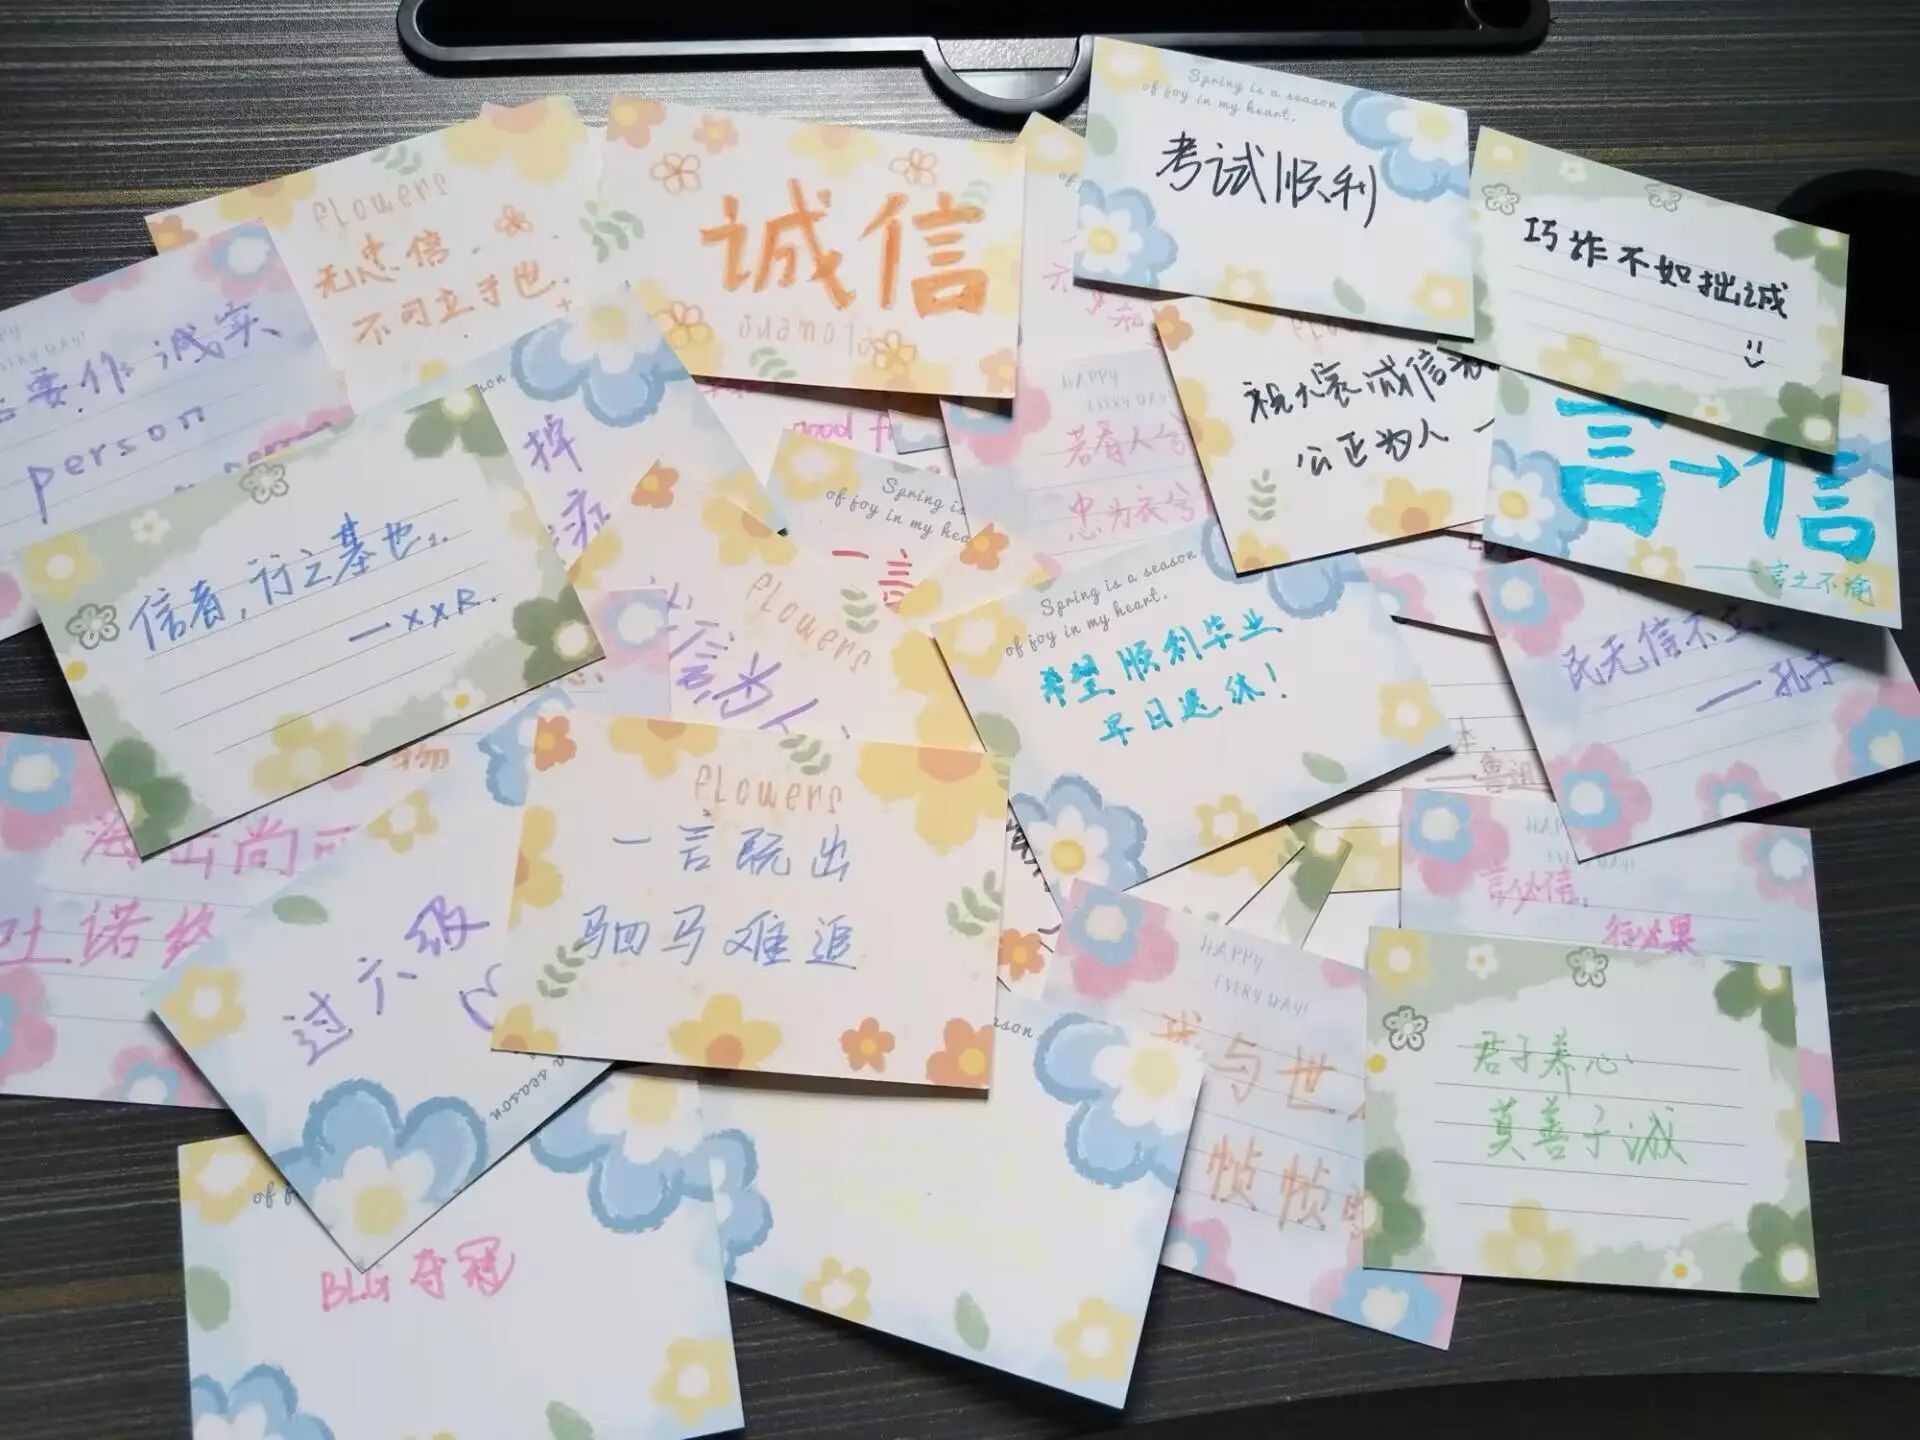 Spring is a season
of joy in my heart.
考试顺利
巧诈不如拙诚
flowers
无忠信.
不可立于世.
诚信
flowers
要作诚实
person
EVERY DAY!
掉
HAPPY
EVERY DAY!
若有人兮
忠为衣兮
祝大家诚信
公正为人
言→信
good
Spring is
of joy in my hea
一言
信者,行之基也.
—xxR.
flowers
信为人
Spring is a season
of joy in my heart.
希望顺利毕业
早日退休!
民无信不立
—孔子
—鲁迅
物
flowers
一言既出
驷马难追
海岳尚可
吐诺终
过六级
a season
HAPPY
EVERY DAY!
言必信,
行必果
HAPPY
EVERY DAY!
我与世
帧帧
君子养心
莫善于诚
BLG夺冠